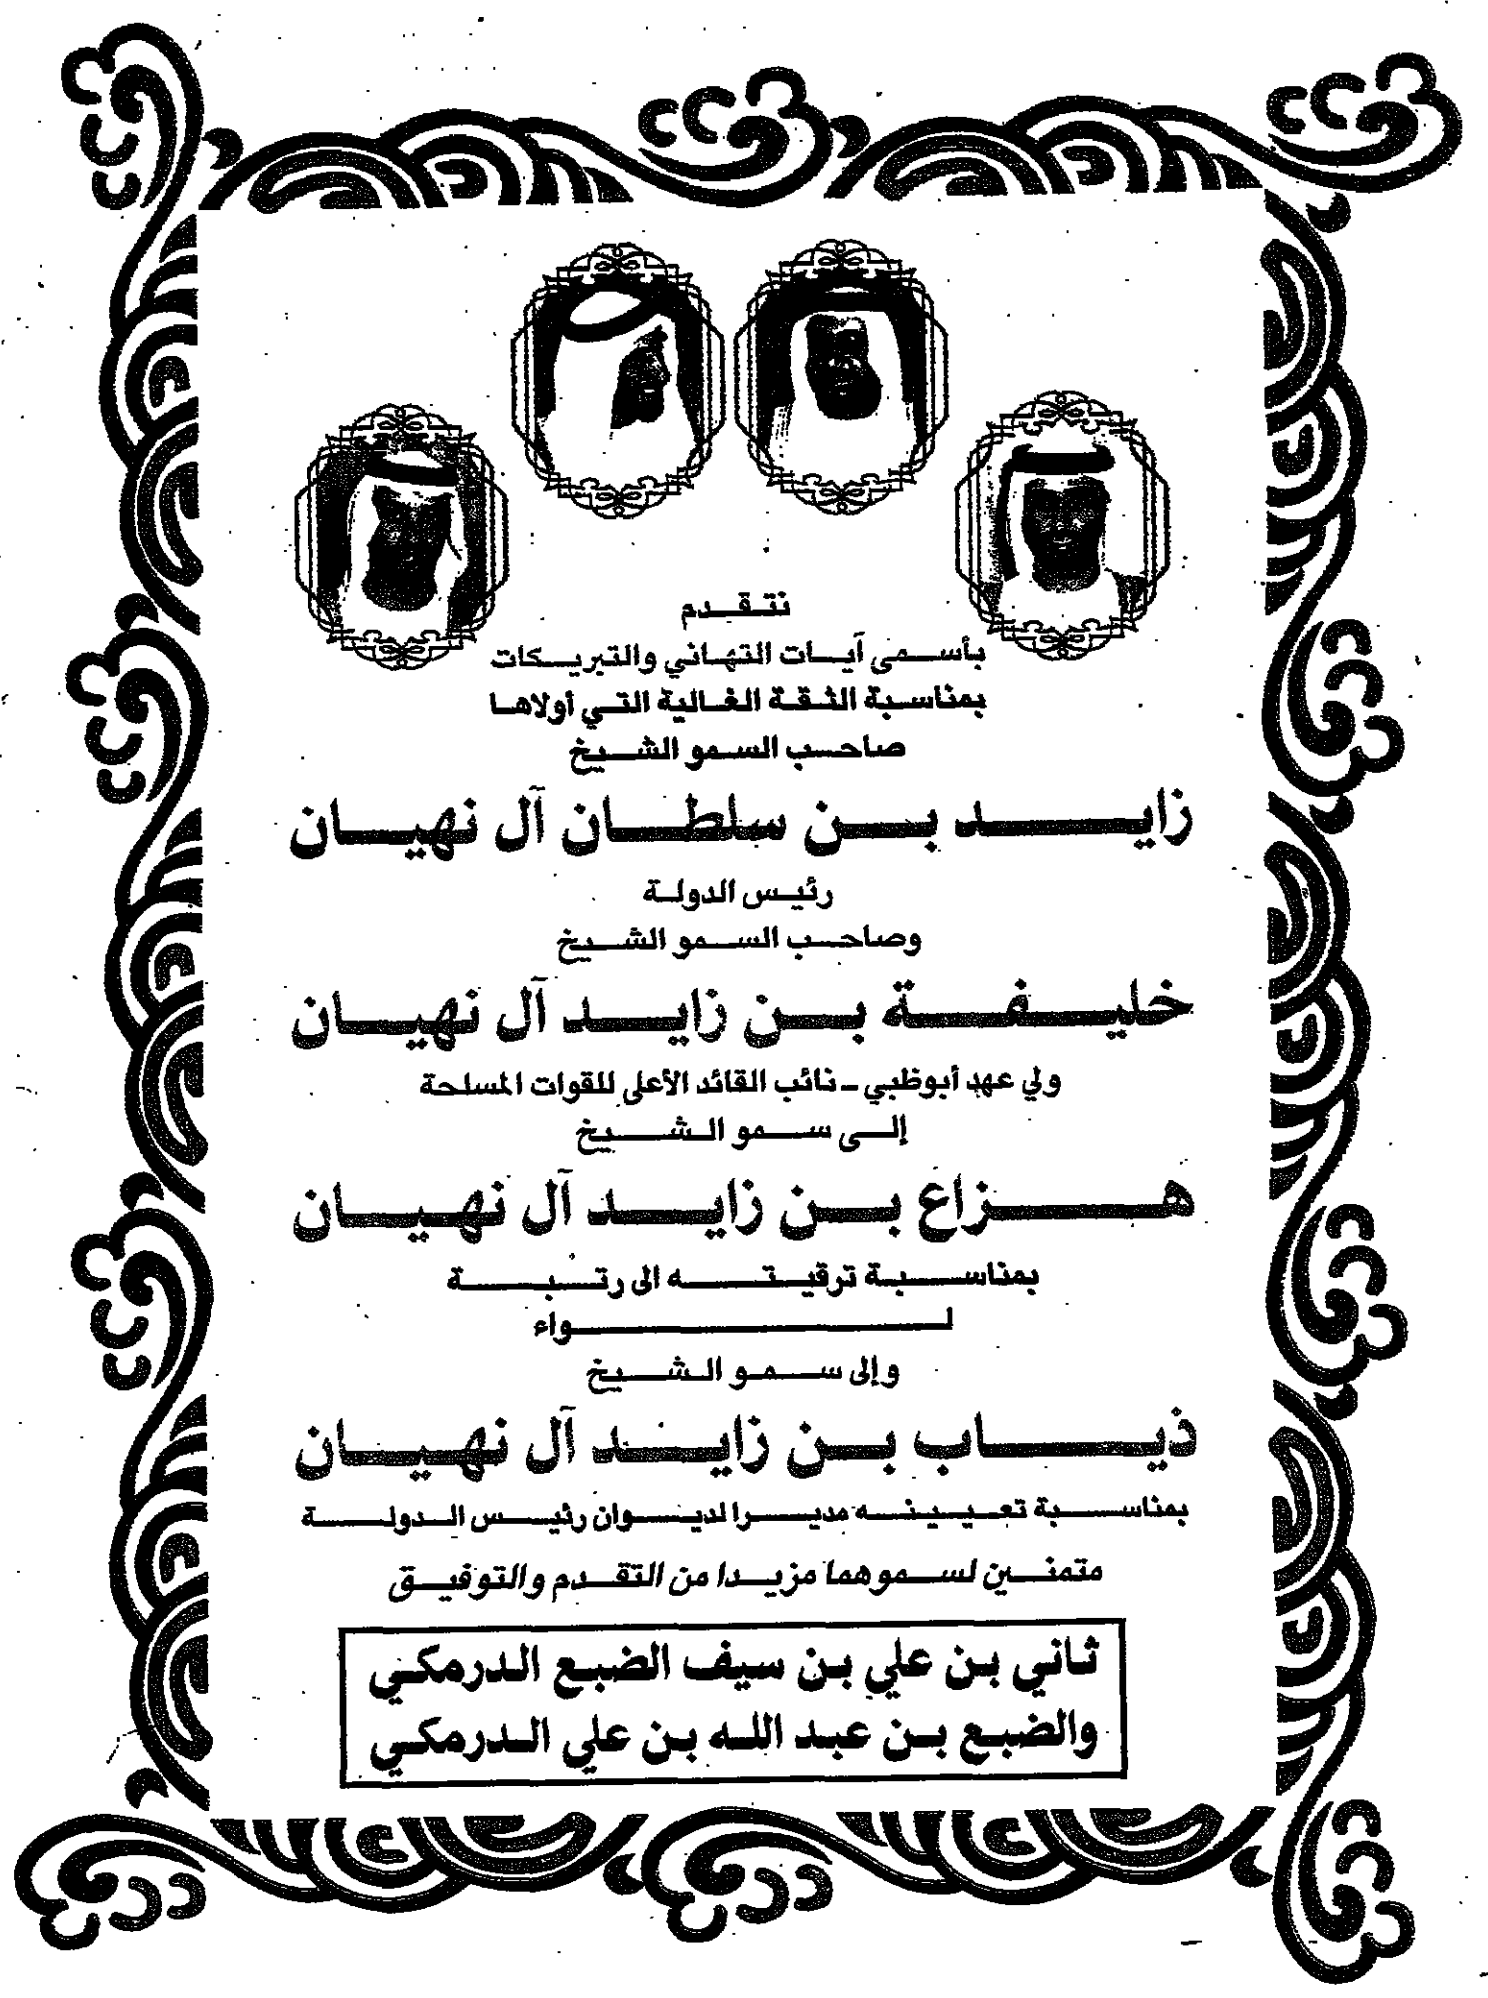 نتقدم
بأسمى آيات التهاني والتبريكات
بمناسبة الثقة الغالية التي أولاها
صاحب السمو الشيخ
زايد بن سلطان آل نهيان
رئيس الدولة
وصاحب السمو الشيخ
خليفة بن زايد آل نهيان
ولي عهد أبوظبي - نائب القائد الأعلى للقوات المسلحة
إلى سمو الشيخ
هزاع بن زايد آل نهيان
بمناسبة ترقيته الى رتبة
لواء
وإلى سمو الشيخ
ذياب بن زايد آل نهيان
بمناسبة تعيينه مديرا لديوان رئيس الدولة
متمنين لسموهما مزيدا من التقدم والتوفيق
ثاني بن علي بن سيف الضبع الدرمكي
والضبع بن عبد الله بن علي الدرمكي